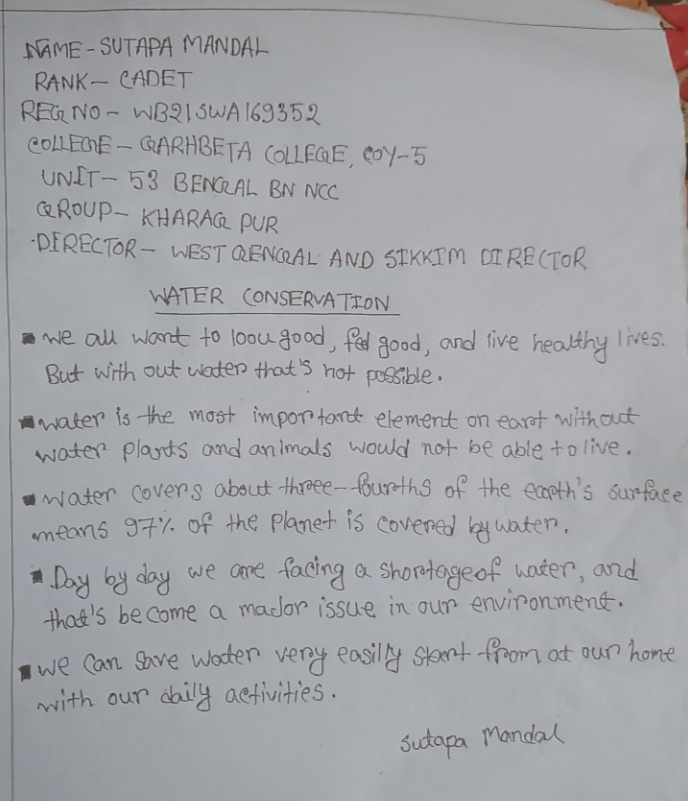 NAME - SUTAPA MANDAL
RANK - CADET
REG NO - WB21SWA169352
COLLEGE - GARHBETA COLLEGE, COY-5
UNIT - 53 BENGAL BN NCC
GROUP - KHARAG PUR
DIRECTOR - WEST BENGAL AND SIKKIM DIRECTOR
WATER CONSERVATION
we all want to loou good, feel good, and live healthy lives.
But with out water that's not possible.
water is the most important element on eart without
water plants and animals would not be able to live.
water covers about three-fourths of the earth's surface
means 97% of the planet is covered by water.
Day by day we are facing a shortage of water, and
that's become a mador issue in our environment.
we can save water very easilly start from at our home
with our daily activities.
Sutapa Mandal